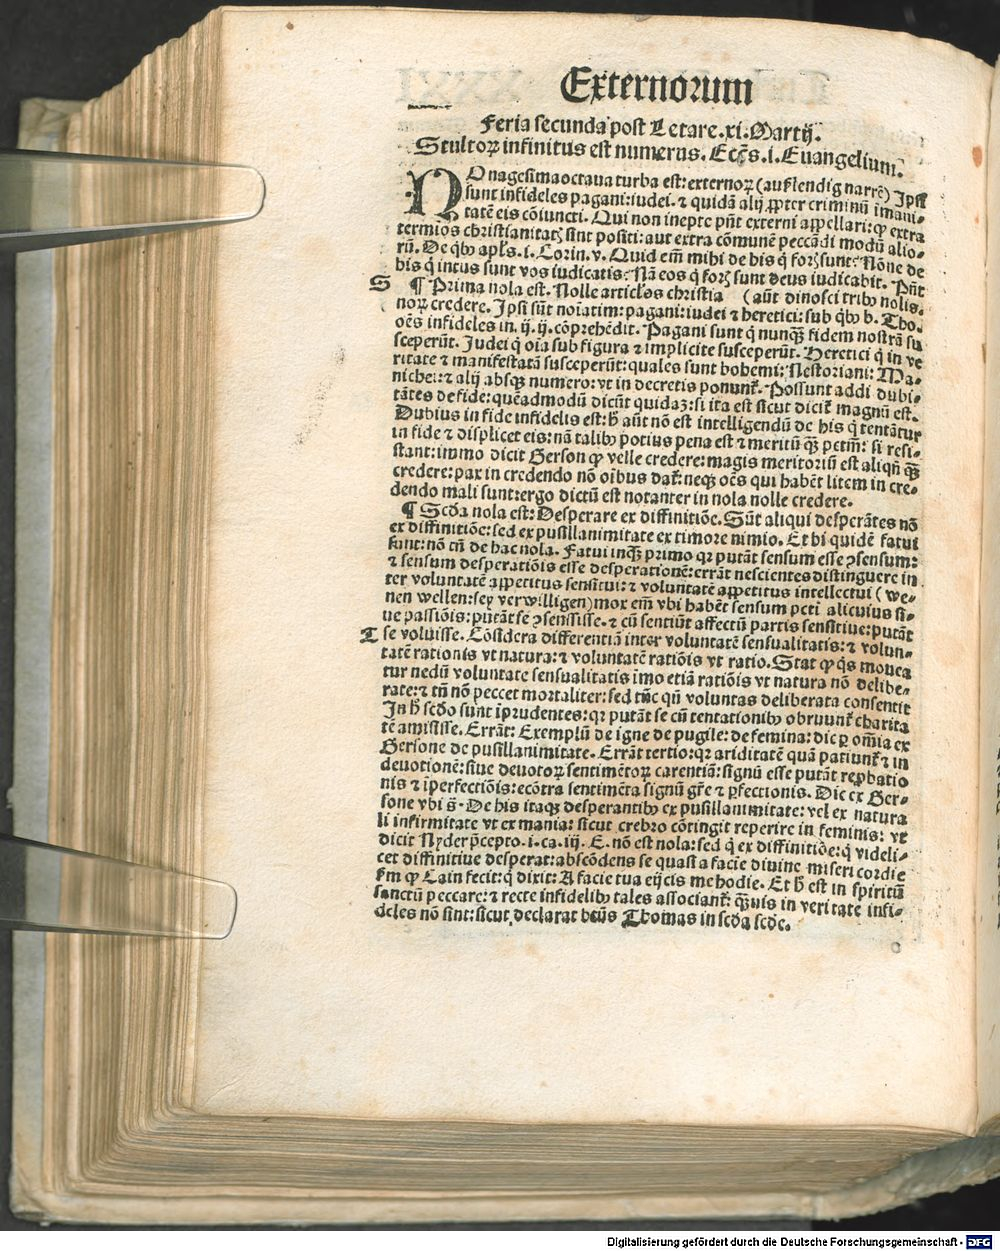 Externoꝛum
Feria secunda post Letare.xi.Martij.
Stultoꝝ infinitus est numerus. Ecc̄s.i.Euangelium.
NOnagesimaoctaua turba est: externoꝝ (auſzlendig narrē) Ipsi
sunt infideles pagani: iudei. ⁊ quidā alij ꝓpter criminū īmani-
tatē eis cōiuncti. Qui non inepte pn̄t externi appellari: ꝙ extra
termīos christianitatꝭ sint positi: aut extra cōmunē peccādi modū alio-
rū. De qͥbꝰ apl̄s.i.Corin.v. Quid em̄ mihi de his q̄ forꝭ sunt: Nōne de
his q̄ intus sunt vos iudicatis: Nā eos q̄ forꝭ sunt deus iudicabit. Pn̄t
S ¶ Prima nola est. Nolle articl̓os christia (aūt dinosci tribꝰ nolis.
noꝝ credere. Ipsi sūt noīatim: pagani: iudei ⁊ heretici: sub qͥbꝰ b. Tho.
oēs infideles in.ij.ij.cōprehēdit. Pagani sunt q̄ nunqͣꝫ fidem nostrā su
sceperūt. Iudei q̄ oīa sub figura ⁊ implicite susceperūt. Heretici q̄ in ve
ritate ⁊ manifestatā susceperūt: quales sunt bohemi: Nestoriani: Ma-
nichei: ⁊ alij absqꝫ numero: vt in decretis ponunt᷑. Possunt addi dubi-
tātes de fide: quēadmodū dicūt quidaꝫ: si ita est sicut dicit᷑ magnū est.
Dubius in fide infidelis est: h̄ aūt nō est intelligendū de his q̄ tentātur
in fide ⁊ displicet eis: nā talibꝰ potius pena est ⁊ meritū qͣꝫ petm̄: si resi-
stant: immo dicit Gerson ꝙ velle credere: magis meritoriū est aliqn̄ qͣꝫ
credere: pax in credendo nō oībus dat᷑: neqꝫ oēs qui habēt litem in cre-
dendo mali sunt: ergo dictū est notanter in nola nolle credere.
¶ Scd̄a nola est: Desperare ex diffinitiōe. Sūt aliqui desperātes nō
ex diffinitiōe: sed ex pusillanimitate ex timore nimio. Et hi quidē fatui
sunt: nō tn̄ de hac nola. Fatui inqͣꝫ primo qꝛ putāt sensum esse ꝯsensum:
⁊ sensum desperatiōis esse desperationē: errāt nescientes distinguere in
ter voluntatē appetitus sensitiui: ⁊ voluntatē appetitus intellectui (we-
nen wellen: sey verwilligen) mox em̄ vbi habēt sensum pcti alicuius si-
ue passiōis: putāt se ꝯsensisse. ⁊ cū sentiūt affectū partis sensitiue: putāt
T se voluisse. Cōsidera differentiā inter voluntatē sensualitatis: ⁊ volun-
tatē rationis vt natura: ⁊ voluntatē ratiōis vt ratio. Stat ꝙ qͥs mouea
tur nedū voluntate sensualitatis īmo etiā ratiōis vt natura nō delibe-
rate: ⁊ tn̄ nō peccet mortaliter: sed tūc qn̄ voluntas deliberata consentit
In h̄ scd̄o sunt īprudentes: qꝛ putāt se cū tentationibꝰ obruunt᷑ charita
tē amisisse. Errāt: Exemplū de igne de pugile: de femina: dic ꝑ om̄ia ex
Gersone de pusillanimitate. Errāt tertio: qꝛ ariditatē quā patiunt᷑ ⁊ in
deuotionē: siue deuotoꝝ sentimētoꝝ carentiā: signū esse putāt reꝓbatio
nis ⁊ īperfectiōis: ecōtra sentimēta signū gr̄e ⁊ ꝑfectionis. Dic ex Ger-
sone vbi s̄. De his itaqꝫ desperantibꝰ ex pusillanimitate: vel ex natura
li infirmitate vt ex mania: sicut crebro cōtingit reperire in feminis: vt
dicit Nyder p̄cepto.i.ca.iij.E. nō est nola: sed q̄ ex diffinitiōe: q̄ videli-
cet diffinitiue desperat: abscōdens se quasi a facie diuine misericordie
f̄m ꝙ Cain fecit: q̄ dixit: A facie tua eijcis me hodie. Et h̄ est in spiritū
sanctū peccare: ⁊ recte infidelibꝰ tales associant᷑: qͣꝫuis in veritate infi-
deles nō sint: sicut declarat btūs Thomas in scd̄a scd̄e.
Digitalisierung gefördert durch die Deutsche Forschungsgemeinschaft - DFG